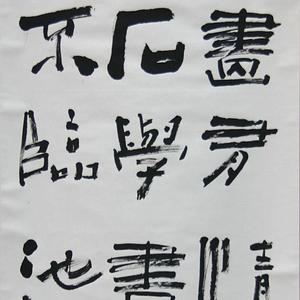 畫情
石學書
不臨池